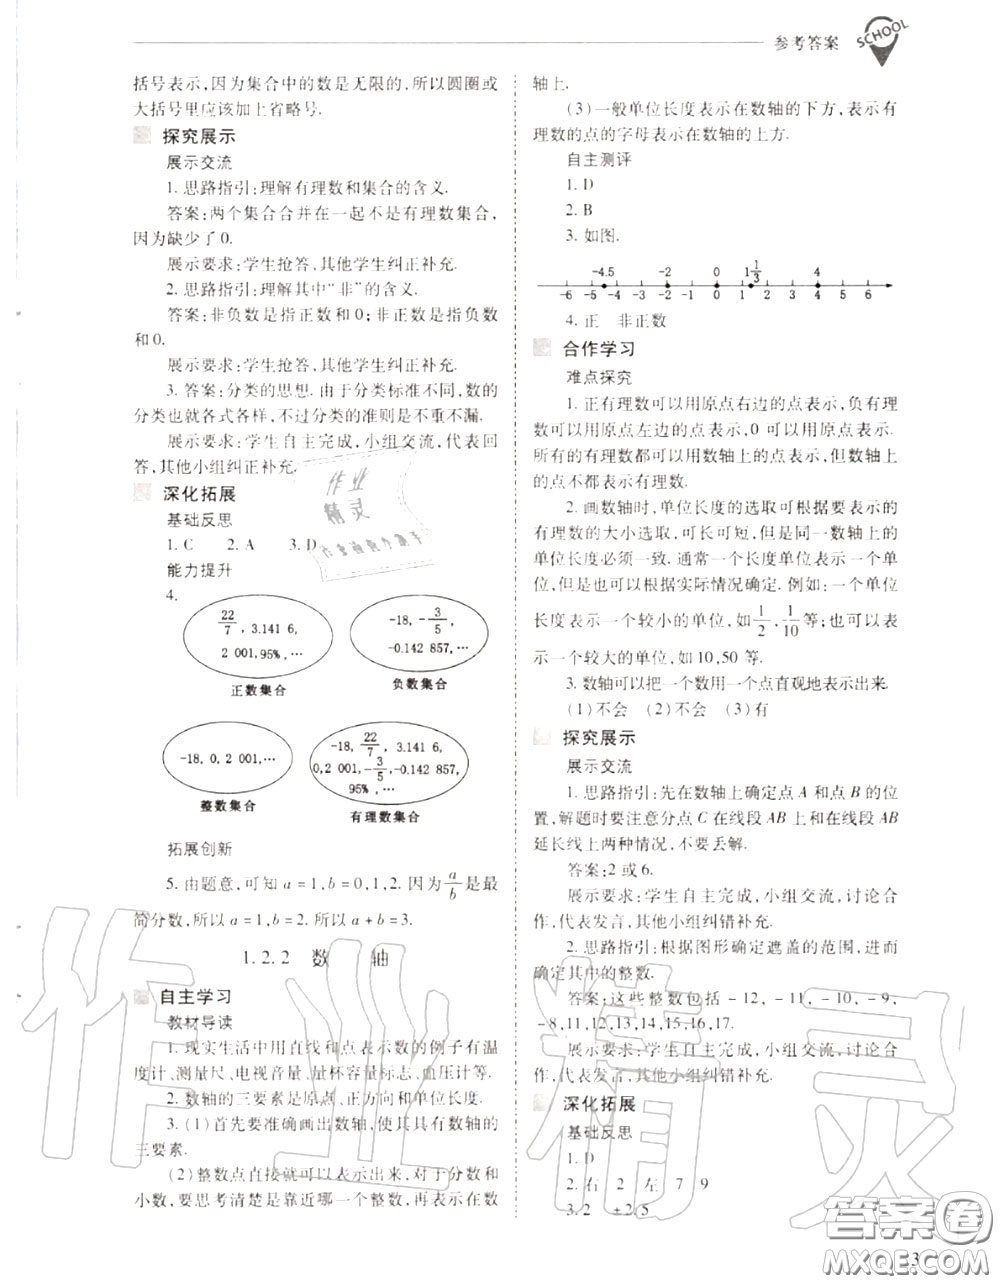 参考答案
SCHOOL
括号表示,因为集合中的数是无限的,所以圆圈或
大括号里应该加上省略号.
探究展示
展示交流
1. 思路指引:理解有理数和集合的含义.
答案:两个集合合并在一起不是有理数集合,
因为缺少了0.
展示要求:学生抢答,其他学生纠正补充.
2. 思路指引:理解其中“非”的含义.
答案:非负数是指正数和0;非正数是指负数
和0.
展示要求:学生抢答,其他学生纠正补充.
3. 答案:分类的思想. 由于分类标准不同,数的
分类也就各式各样,不过分类的准则是不重不漏.
展示要求:学生自主完成,小组交流,代表回
答,其他小组纠正补充.
深化拓展
基础反思
1. C 2. A 3. D
能力提升
4.
22/7, 3.141 6,
2 001, 95%, …
正数集合
-18, -3/5,
-0.142 857, …
负数集合
-18, 0, 2 001, …
整数集合
-18, 22/7, 3.141 6,
0, 2 001, -3/5, -0.142 857,
95%, …
有理数集合
拓展创新
5. 由题意,可知 a=1,b=0,1,2. 因为 a/b 是最
简分数,所以 a=1,b=2. 所以 a+b=3.
1.2.2 数 轴
自主学习
教材导读
1. 现实生活中用直线和点表示数的例子有温
度计、测量尺、电视音量、量杯容量标志、血压计等.
2. 数轴的三要素是原点、正方向和单位长度.
3. (1)首先要准确画出数轴,使其具有数轴的
三要素.
(2)整数点直接就可以表示出来,对于分数和
小数,要思考清楚是靠近哪一个整数,再表示在数
轴上.
(3)一般单位长度表示在数轴的下方,表示有
理数的点的字母表示在数轴的上方.
自主测评
1. D
2. B
3. 如图.
-4.5 -2 0 1 1/3 4
-6 -5 -4 -3 -2 -1 0 1 2 3 4 5 6
4. 正 非正数
合作学习
难点探究
1. 正有理数可以用原点右边的点表示,负有理
数可以用原点左边的点表示,0可以用原点表示.
所有的有理数都可以用数轴上的点表示,但数轴上
的点不都表示有理数.
2. 画数轴时,单位长度的选取可根据要表示的
有理数的大小选取,可长可短,但是同一数轴上的
单位长度必须一致. 通常一个长度单位表示一个单
位,但是也可以根据实际情况确定. 例如:一个单位
长度表示一个较小的单位,如 1/2, 1/10 等;也可以表
示一个较大的单位,如10,50等.
3. 数轴可以把一个数用一个点直观地表示出来.
(1)不会 (2)不会 (3)有
探究展示
展示交流
1. 思路指引:先在数轴上确定点 A 和点 B 的位
置,解题时要注意分点 C 在线段 AB 上和在线段 AB
延长线上两种情况,不要丢解.
答案:2或6.
展示要求:学生自主完成,小组交流,讨论合
作,代表发言,其他小组纠错补充.
2. 思路指引:根据图形确定遮盖的范围,进而
确定其中的整数.
答案:这些整数包括 -12, -11, -10, -9,
-8,11,12,13,14,15,16,17.
展示要求:学生自主完成,小组交流,讨论合
作,代表发言,其他小组纠错补充.
深化拓展
基础反思
1. D
2. 右 2 左 7 9
3. 2 ±2.5
3
作业
精灵
作业精灵
答案卷
MXQE.COM